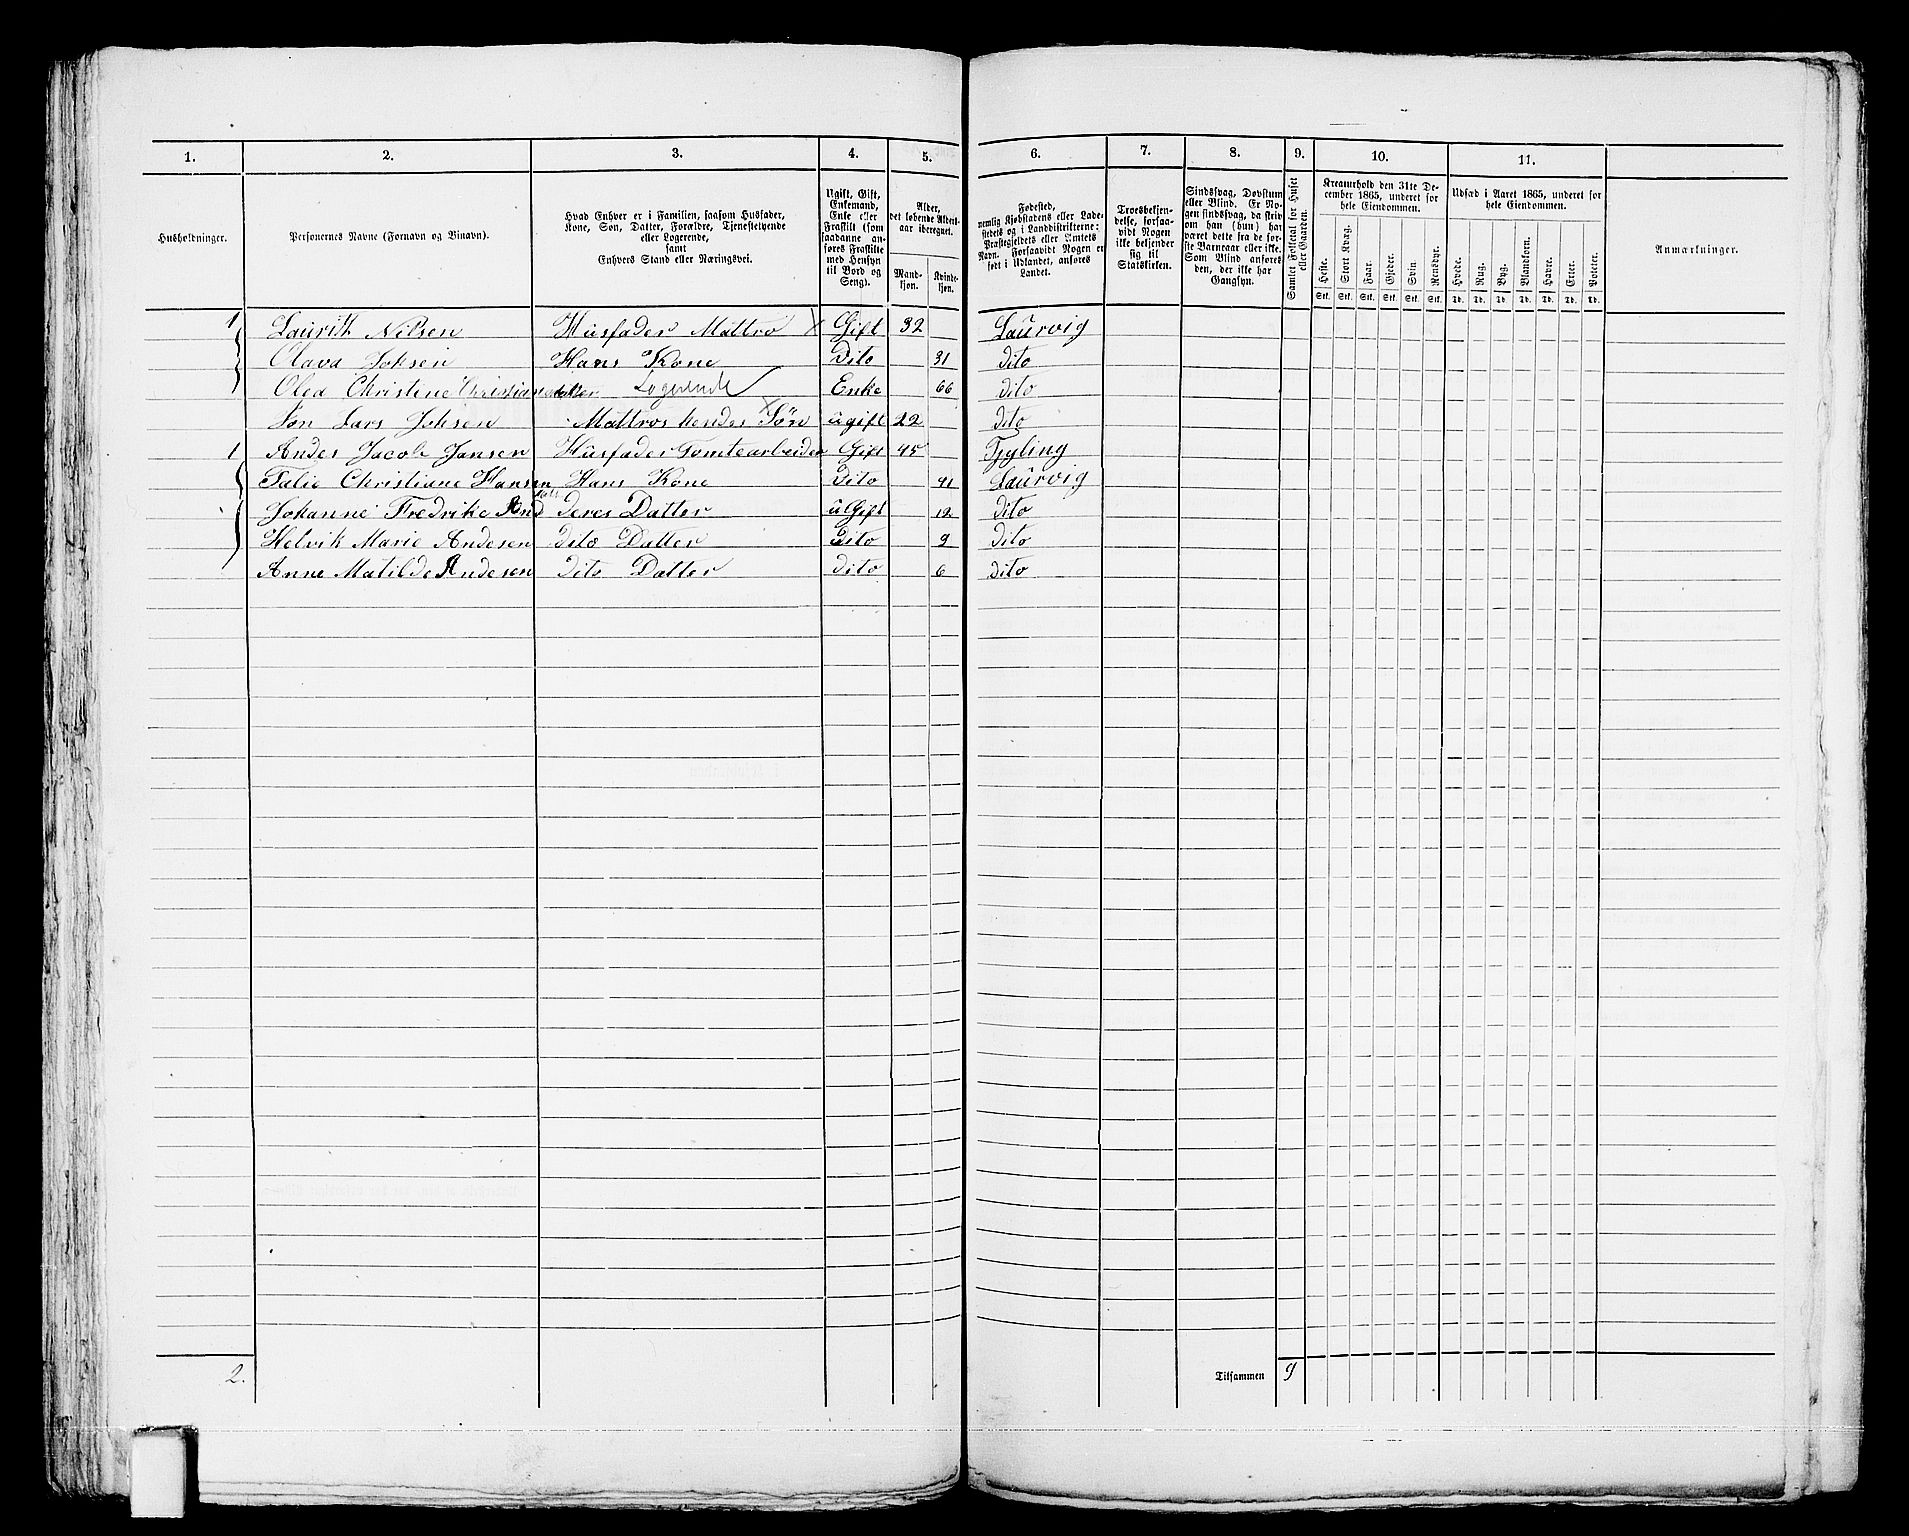 1. 2. 3. 4. 5. 6. 7. 8. 9. 10. 11.
Husholdninger.
Personernes Navne (Fornavn og Binavn).
Hvad Enhver er i Familien, saasom Husfader,
Kone, Søn, Datter, Forældre, Tjenestetyende
eller Logerende,
samt
Enhvers Stand eller Næringsvei.
Ugift, Gift,
Enkemand,
Enke eller
Fraskilt (som
saadanne an-
føres Fraskilte
med Hensyn
til Bord og
Seng).
Alder,
det løbende Alders-
aar iberegnet.
Mand-
kjøn.
Kvinde-
kjøn.
Fødested,
nemlig Kjøbstadens eller Lade-
stedets og i Landdistrikterne:
Præstegjeldets eller Amtets
Navn. Forsaavidt Nogen er
født i Udlandet, anføres
Landet.
Troesbekjen-
delse, forsaa-
vidt Nogen
ikke bekjender
sig til
Statskirken.
Sindssvag, Døvstum
eller Blind. Er No-
gen sindssvag, da skriv
om han (hun) har
været dette fra de før-
ste Barneaar eller ikke.
Som Blind anføres
den, der ikke har
Gangsyn.
Samlet Folketal for Huset
eller Gaarden.
Kreaturhold den 31te De-
cember 1865, underet for
hele Eiendommen.
Heste. Stort Kvæg. Faar. Gjeder. Svin. Rensdyr.
Stk. Stk. Stk. Stk. Stk. Stk.
Udsæd i Aaret 1865, underet for
hele Eiendommen.
Hvede. Rug. Byg. Blandkorn. Havre. Erter. Poteter.
Td. Td. Td. Td. Td. Td. Td.
Anmærkninger.
1 Lauritk Nilsen Husfader Mattro Gift 32 Laurvig
Olava Joksen Hans Kone Dito 31 Dito
Olea Christine Christiansdatter Logerende Enke 66 Dito
Søn Lars Joksen Mattros hendes Søn ugift 22 Dito
1 Andes Jacob Jansen Husfader Tomtearbeider Gift 45 Tjøling
Talie Christiane Hansen Hans Kone Dito 41 Laurvig
Johanne Fredrike And datt Deres Datter uGift 12 Dito
Helvik Marie Andesen Dito Datter Dito 9 Dito
Anne Matilde Andesen Dito Datter Dito 6 Dito
2. Tilsammen 9